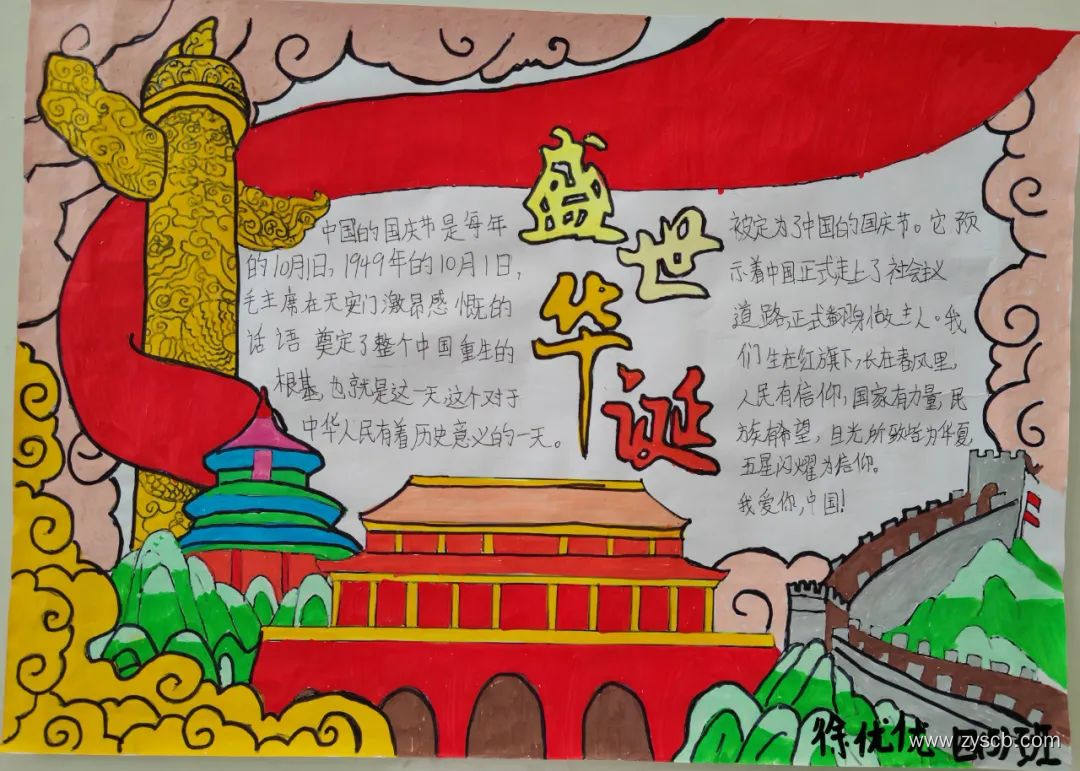 盛世华诞
中国的国庆节是每年
的10月1日，1949年的10月1日，
毛主席在天安门激昂感慨的
话语 奠定了整个中国重生的
根基，也就是这一天，这个对于
中华人民有着历史意义的一天。
被定为了中国的国庆节。它预
示着中国正式走上了社会主义
道路，正式翻身做主人。我
们生在红旗下，长在春风里，
人民有信仰，国家有力量，民
族有希望，目光所致皆为华夏，
五星闪耀为信仰。
我爱你，中国！
徐优优
www.zyscb.com